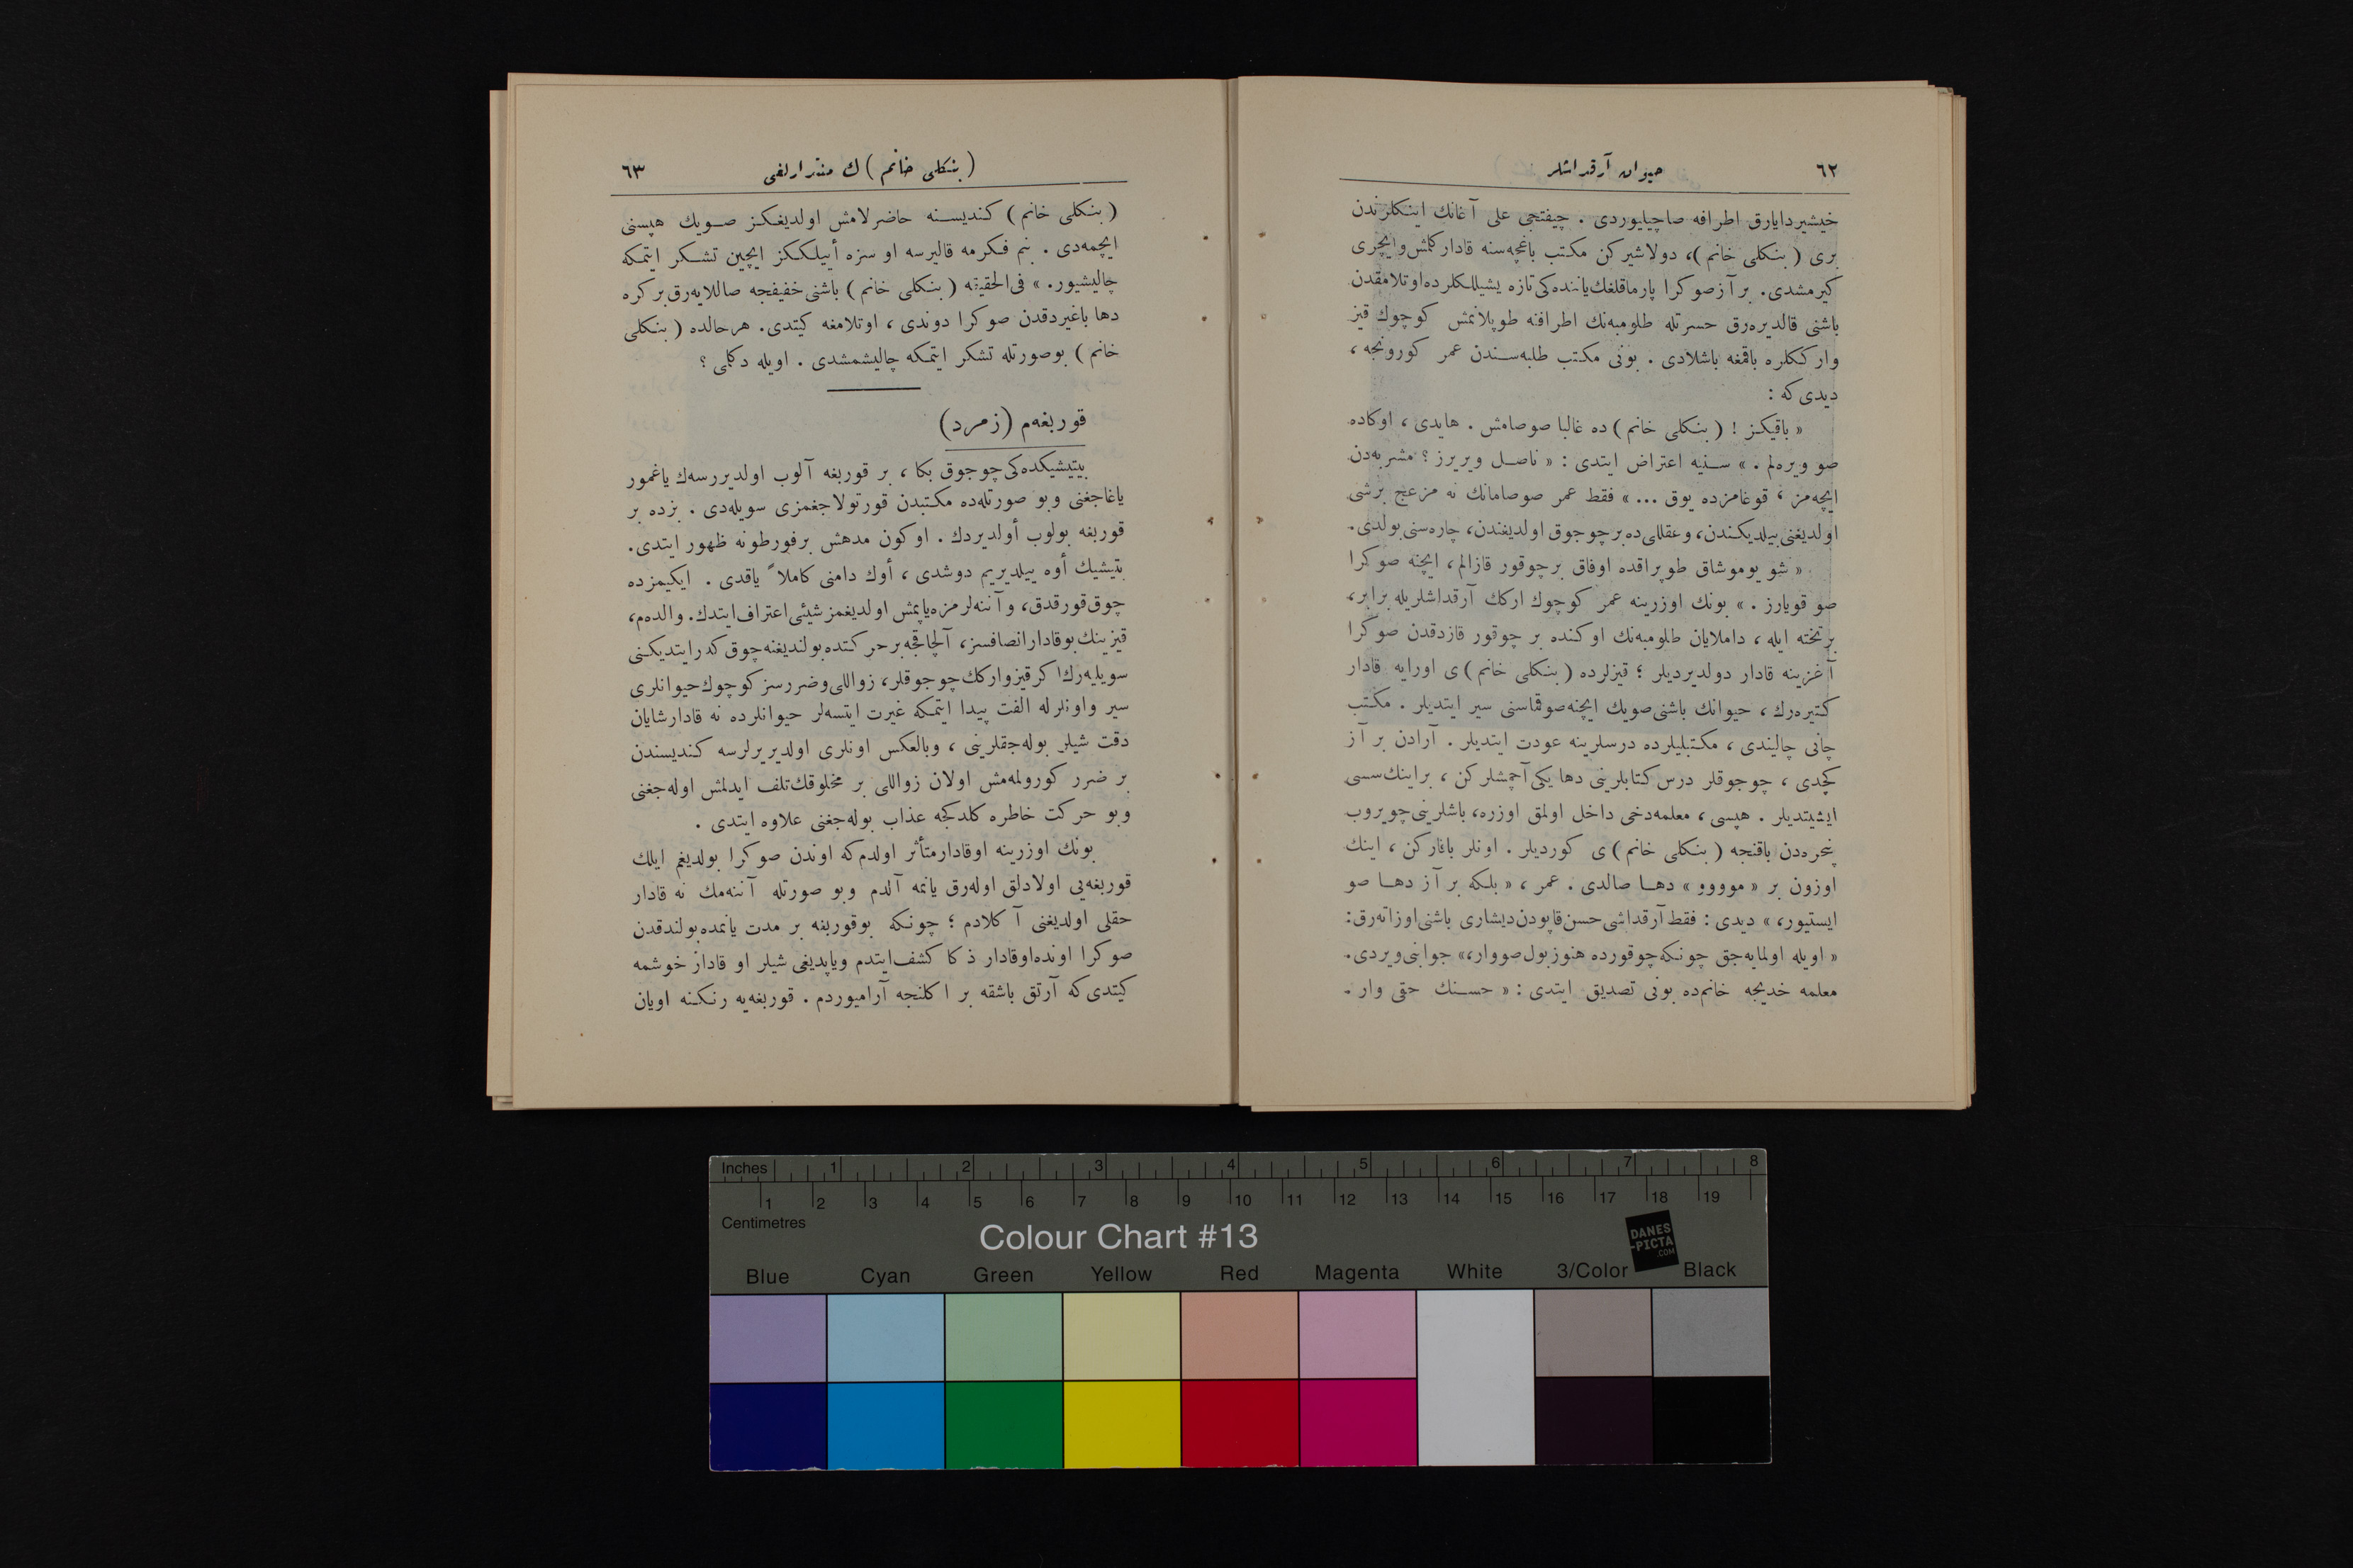 ٦٢
حيوان آرقداشلر
خيشيردايارق اطرافه صاچيليوردى . چيفتجى على آغانك اينكلرندن
برى ( بنكلى خانم )، دولاشيركن مكتب باغچه‌سنه قادار كلمش وايچرى
كيرمشدى. بر آز صوكرا پارماقلغك ياننده‌كى تازه يشيللكلرده اوتلامقدن
باشنى قالديره‌رق حسرتله طلومبه‌نك اطرافنه طوپلانمش كوچوك قيز
وار ككلره باقمغه باشلادى . بونى مكتب طلبه‌سندن عمر كورونجه ،
ديدى كه :
« باقيكز ! ( بنكلى خانم ) ده غالبا صوصامش . هايدى ، اوكاده
صو ويره‌لم . » سنيه اعتراض ايتدى : « ناصل ويريرز ؟ مشربه‌دن
ايچه‌مز ، قوغامزده يوق ... » فقط عمر صوصامانك نه مزعج برشى
اولديغنى بيلديكندن، وعقللى ده بر چوجوق اولديغندن، چاره‌سنى بولدى.
« شو يوموشاق طوپراقده اوفاق بر چوقور قازالم ، ايچنه صوكرا
صو قويارز . » بونك اوزرينه عمر كوچوك اركك آرقداشلريله برابر،
بر تخته ايله ، داملايان طلومبه‌نك اوكنده بر چوقور قازدقدن صوكرا
آغزينه قادار دولديرديلر ؛ قيزلرده ( بنكلى خانم ) ى اورايه قادار
كتيره‌رك ، حيوانك باشنى صويك ايچنه صوقماسنى سير ايتديلر . مكتب
چانى چاليندى ، مكتبليلرده درسلرينه عودت ايتديلر . آرادن بر آز
كچدى ، چوجوقلر درس كتابلرينى دها يكى آچمشلركن ، براينك سسى
ايشيتديلر . هپسى ، معلمه دخى داخل اولمق اوزره، باشلرينى چويروب
پنجره‌دن باقنجه ( بنكلى خانم ) ى كورديلر . اونلر باقاركن ، اينك
اوزون بر « موووو » دها صالدى . عمر ، « بلكه بر آز دها صو
ايستيور، » ديدى : فقط آرقداشى حسن قاپودن ديشارى باشنى اوزاته‌رق:
« اويله اولمايه‌جق چونكه چوقورده هنوز بول صو وار، » جوابنى ويردى.
معلمه خديجه خانم‌ده بونى تصديق ايتدى : « حسنك حقى وار .
( بنكلى خانم ) ك منتدارلغى
٦٣
( بنكلى خانم ) كنديسنه حاضرلامش اولديغكز صويك هپسنى
ايچمه‌دى . بنم فكرمه قاليرسه او سزه أييلككز ايچين تشكر ايتمكه
چاليشيور. » فى الحقيقه ( بنكلى خانم ) باشنى خفيفجه صاللايه‌رق بر كره
دها باغيردقدن صوكرا دوندى ، اوتلامغه كيتدى. هرحالده ( بنكلى
خانم ) بوصورتله تشكر ايتمكه چاليشمشدى . اويله دكلمى ؟
قوربغه‌م (زمرد)
بيتيشيكده‌كى چوجوق بكا ، بر قوربغه آلوب اولديررسه‌ك ياغمور
ياغاجغنى وبو صورتله‌ده مكتبدن قورتولاجغمزى سويله‌دى . بزده بر
قوربغه بولوب أولديردك . او كون مدهش برفورطونه ظهور ايتدى.
بتيشيك أوه ييلديريم دوشدى ، أوك دامنى كاملاً ياقدى . ايكيمزده
چوق قورقدق، و آننه‌لرمزه ياپمش اولديغمز شيئى اعتراف ايتدك. والده‌م،
قيزينك بوقادار انصافسز، آلچاقجه بر حركتده بولنديغنه چوق كدر ايتديكنى
سويليه‌رك اكر قيز واركك چوجوقلر، زواللى وضررسز كوچوك حيوانلرى
سير واونلرله الفت پيدا ايتمكه غيرت ايتسه‌لر حيوانلرده نه قادار شايان
دقت شيلر بوله‌جقلرينى ، وبالعكس اونلرى اولديريرلرسه كنديسندن
بر ضرر كورولمه‌مش اولان زواللى بر مخلوقك تلف ايدلمش اوله‌جغنى
وبو حركت خاطره كلدكجه عذاب بوله‌جغنى علاوه ايتدى .
بونك اوزرينه اوقادار متأثر اولدم كه اوندن صوكرا بولديغم ايلك
قوربغه‌يى اولادلق اوله‌رق يانمه آلدم وبو صورتله آننه‌مك نه قادار
حقلى اولديغنى آكلادم ؛ چونكه بوقوربغه بر مدت يانمده بولندقدن
صوكرا اونده اوقادار ذكا كشف ايتدم وياپديغى شيلر او قادار خوشمه
كيتدى كه آرتق باشقه بر اكلنجه آراميوردم . قوربغه‌يه رنكنه اويان
Inches 1 2 3 4 5 6 7 8
1 2 3 4 5 6 7 8 9 10 11 12 13 14 15 16 17 18 19
Centimetres
Colour Chart #13
DANES
-PICTA
.COM
Blue Cyan Green Yellow Red Magenta White 3/Color Black